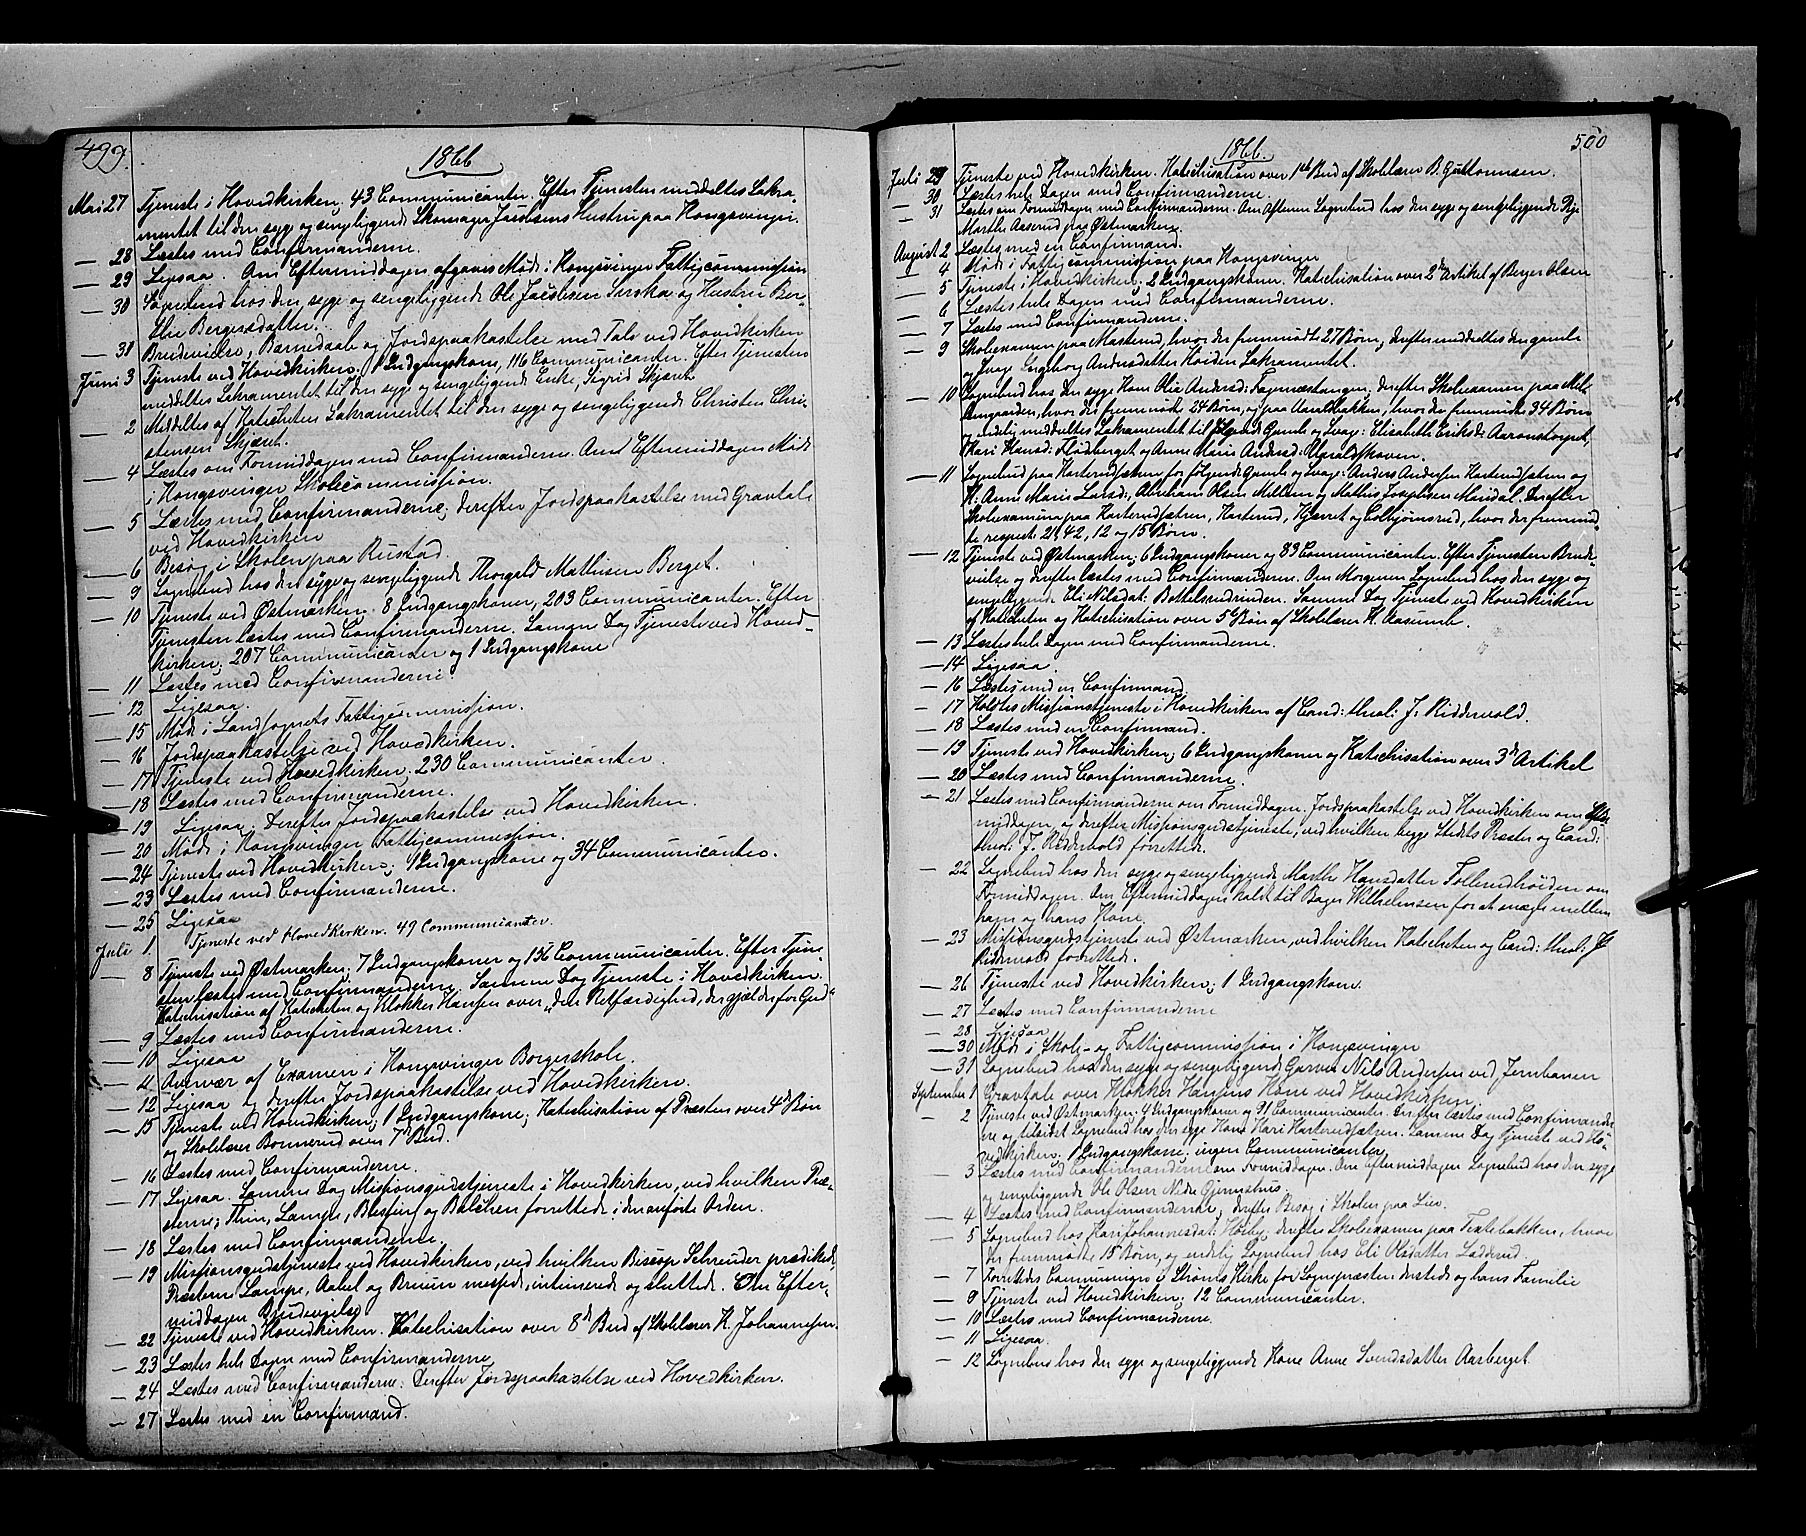 499.
1866
Mai 27 Tjeneste i Hovedkirken. 43 Communicanter. Efter Tjenesten meddeltes Sakra-
mentet til den syge og sengeliggende Skomager Jacobsens Hustru paa Kongsvinger.
— 28 Læstes med Confirmanderne.
— 29 Ligesaa. Om Eftermiddagen afgaves Møde i Kongsvinger Fattigcommission
— 30 Sognebud hos den syge og sengeliggende Ole Jacobsen og Hustru Ber-
the Bergersdatter.
— 31 Brudevielse, Barnedaab og Jordspaakastelse med Tale ved Hovedkirken
Juni 3 Tjeneste ved Hovedkirken. 1 Indgangskone, 116 Communicanter. Efter Tjenesten
meddeltes Sakramentet til den syge og sengeliggende Enke, Sigrid Skjæret.
— 2 Meddeltes af Katecheten Sakramentet til den syge og sengeliggende Christen Chri-
stensen Skjæret.
— 4 Læstes om Formiddagen med Confirmanderne. Om Eftermiddagen Møde
i Kongsvinger Skolecommission.
— 5 Læstes med Confirmanderne; derefter Jordspaakastelse med Gravtale
ved Hovedkirken
— 6 Besøg i Skolen paa Rustad.
— 9 Sognebud hos den syge og sengeliggende Thorgald Mathisen Berget.
— 10 Tjeneste ved Østmarken. 8 Indgangskoner, 203 Communicanter. Efter
Tjenesten læstes med Confirmanderne. Samme Dag Tjeneste ved Hoved-
kirken; 207 Communicanter og 1 Indgangskone
— 11 Læstes med Confirmanderne.
— 12 Ligesaa.
— 15 Møde i Landsognets Fattigcommission.
— 16 Jordspaakastelse ved Hovedkirken.
— 17 Tjeneste ved Hovedkirken; 230 Communicanter.
— 18 Læstes med Confirmanderne.
— 19 Ligesaa; Derefter Jordspaakastelse ved Hovedkirken.
— 20 Møde i Kongsvinger Fattigcommission.
— 24 Tjeneste ved Hovedkirken; 1 Indgangskone og 34 Communicanter.
— 23 Læstes med Confirmanderne.
— 25 Ligesaa
Juli 1 Tjeneste ved Hovedkirken. 49 Communicanter.
— 8 Tjeneste ved Østmarken; 7 Indgangskoner og 136 Communicanter. Efter Tjene-
sten læstes med Confirmanderne. Samme Dag Tjeneste i Hovedkirken.
Katechisation af Katecheten og Klokker Hansen over, "den Retfærdighed, der gjælder for Gud"
— 9 Læstes med Confirmanderne.
— 10 Ligesaa
— 11 Overvær af Examen i Kongsvinger Borgerskole.
— 12 Ligesaa og derefter Jordspaakastelse ved Hovedkirken.
— 15 Tjeneste ved Hovedkirken; 1 Indgangskone; Katechisation af Præsten over 4de Bøn
og Skolelærer Bonnerud over 7de Bud.
— 16 Læstes med Confirmanderne.
— 17 Ligesaa. Samme Dag Missionsgudstjeneste i Hovedkirken, ved hvilken Præ-
sterne; Thrin, Lampe, Blessing og Balchen forrettede i den anførte Orden.
— 18 Læstes med Confirmanderne.
— 19 Missionsgudstjeneste ved Hovedkirken, ved hvilken Biscop Schreuder prædikede,
Præsterne Lampe, Aabel og Bruun messede, intimerede og sluttede. Om Efter-
middagen Brudevielse
— 22 Tjeneste ved Hovedkirken. Katechisation over 8de Bud af Skolelærer K. Johannesen.
— 23 Læstes hele Dagen med Confirmanderne
— 24 Læstes med Confirmanderne; Derefter Jordspaakastelse ved Hovedkirken.
— 27 Læstes med en Confirmand.
500
1866.
Juli 29 Tjeneste ved Hovedkirken. Katechisation over 1ste Bud af Skolelærer B. Guttormsen.
— 30 Læstes hele Dagen med Confirmanderne.
— 31 Læstes om Formiddagen med Confirmanderne. Om Aftenen Sognebud hos den syge og sengeliggende Pige
Marthe Asserud paa Østmarken.
August 2 Læstes med en Confirmand.
— 4 Møde i Fattigcommission paa Kongsvinger
— 5 Tjeneste i Hovedkirken; 2 Indgangskoner. Katechisation over 2den Artikel af Berger Olsen
— 6 Læstes hele Dagen med Confirmanderne.
— 7 Læstes med Confirmanderne.
— 9 Skoleexamen paa Masterud, hvor der fremmødte 27 Børn; derefter meddeltes den gamle
og svage Ingeborg Andersdatter Høiden Sakramentet.
— 10 Sognebud hos den syge Kone Olia Andersd: Fagernæstangen; derefter Skoleexamen paa
hvor der fremmødte 24 Børn, og paa hvor der fremmødte 34 Børn
endelig meddeltes Sakramentet til følgende Gamle og Svage: Elisabeth Eriksd: Aaronstorpet,
Kari Hansd: Flodberget og Anne Marie Andersd: Opaaldskoven.
— 11 Sognebud paa Harterudsætren for følgende Gamle og Svage: Anders Andersen Harterudsætren og
K. Anne Marie Larsd:, Abraham Olsen Millom og Mathis Josephsen Mandal. Derefter
Skoleexamina paa Harterudsætren, Harterud, Kjerret og Colbjørnsrud, hvor der fremmød-
te respect: 21, 42, 12 og 15 Børn.
— 12 Tjeneste ved Østmarken; 6 Indgangskoner og 83 Communicanter. Efter Tjenesten Brude-
vielse og derefter læstes med Confirmanderne. Om Morgenen Sognebud hos den syge og
sengeliggende Eli Nilsdat: Samme Dag Tjeneste ved Hovedkirken
af Katecheten og Katechisation over 5te Bøn af Skolelærer K. Aasum.
— 13 Læstes hele Dagen med Confirmanderne.
— 14 Ligesaa.
— 16 Læstes med en Confirmand
— 17 Holdtes Missionstjeneste i Hovedkirken af Cand: theol: J. Riddervold.
— 18 Læstes med en Confirmand.
— 19 Tjeneste ved Hovedkirken; 6 Indgangskoner og Katechisation over 3de Artikel
— 20 Læstes med Confirmanderne.
— 21 Læstes med Confirmanderne om Formiddagen. Jordspaakastelse ved Hovedkirken om Efter-
middagen, og derefter Missionsgudstjeneste, ved hvilken begge Stedets Præster og Cand:
theol: J. Riddervold forrettede.
— 22 Sognebud hos den syge og sengeliggende Marthe Hansdatter Tollerudhøiden om
Formiddagen. Om Eftermiddagen kaldt til Bager Wilhelmsen for at mægle mellem
ham og hans Kone.
— 23 Missionsgudstjeneste ved Østmarken, ved hvilken Katecheten og Cand: theol: J.
Riddervold forrettede.
— 26 Tjeneste ved Hovedkirken; 1 Indgangskone.
— 27 Læstes med Confirmanderne
— 28 Ligesaa
— 30 Møde i Skole- og Fattigcommission i Kongsvinger
— 31 Sognebud hos den syge og sengeliggende Garver Nils Andersen ved Jernbanen
September 1 Gravtale over Klokker Hansens Kone ved Hovedkirken.
— 2 Tjeneste ved Østmarken; 4 Indgangskoner og 91 Communicanter. Derefter læstes med Confirmander-
ne og tilsidst Sognebud hos den syge Kone Kari Harterudsætren. Samme Dag Tjeneste ved Ho-
vedkirken. 1 Indgangskone; ingen Communicanter
— 3 Læstes med Confirmanderne om Formiddagen. Om Eftermiddagen Sognebud hos den syge
og sengeliggende Ole Olsen Nedre Gjemshus.
— 4 Læstes med Confirmanderne; derefter Besøg i Skolen paa Lier.
— 5 Sognebud hos Kari Johannesdat: Hôlby, derefter Skoleexamen paa Textebakken, hvor
der fremmødte 15 Børn, og endelig Sognebud hos Eli Olsdatter Ladderud.
— 7 Forrettedes Communion i Strøms Kirke for Sognepræsten dersteds og hans Familie
— 9 Tjeneste ved Hovedkirken; 12 Communicanter.
— 10 Læstes med Confirmanderne.
— 11 Ligesaa.
— 12 Sognebud hos den syge og sengeliggende Kone Anne Svendsdatter Aasberget.